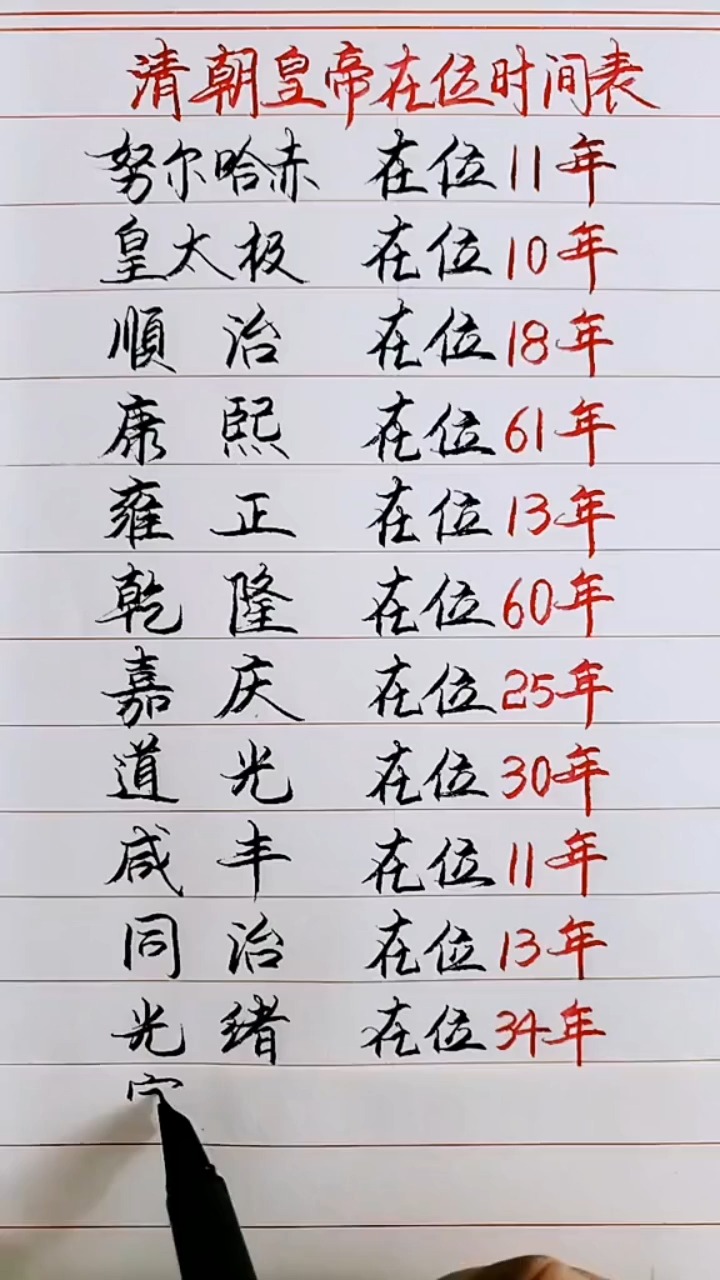 清朝皇帝在位时间表
努尔哈赤 在位11年
皇太极 在位10年
順治 在位18年
康熙 在位61年
雍正 在位13年
乾隆 在位60年
嘉庆 在位25年
道光 在位30年
咸丰 在位11年
同治 在位13年
光绪 在位34年